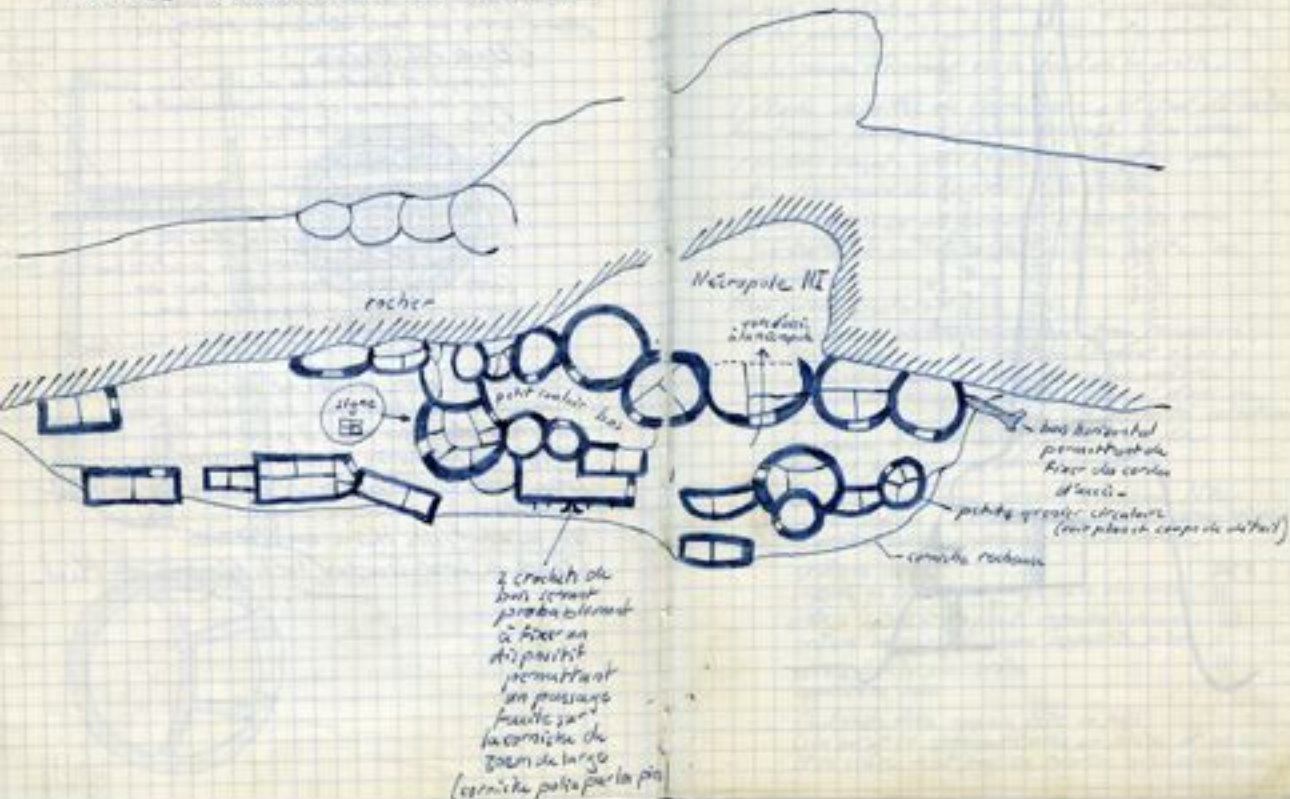 rocher
Nécropole III
à la nécropole
signe
petit couloir bas
bois horizontal
permettant de
fixer des cordes
d'accès
petit grenier circulaire
(voir plan et coupe de détail)
corniche rocheuse
2 crochets de
bois servant
probablement
à fixer un
dispositif
permettant
un passage
facile sur
la corniche de
de large
(corniche polie par les